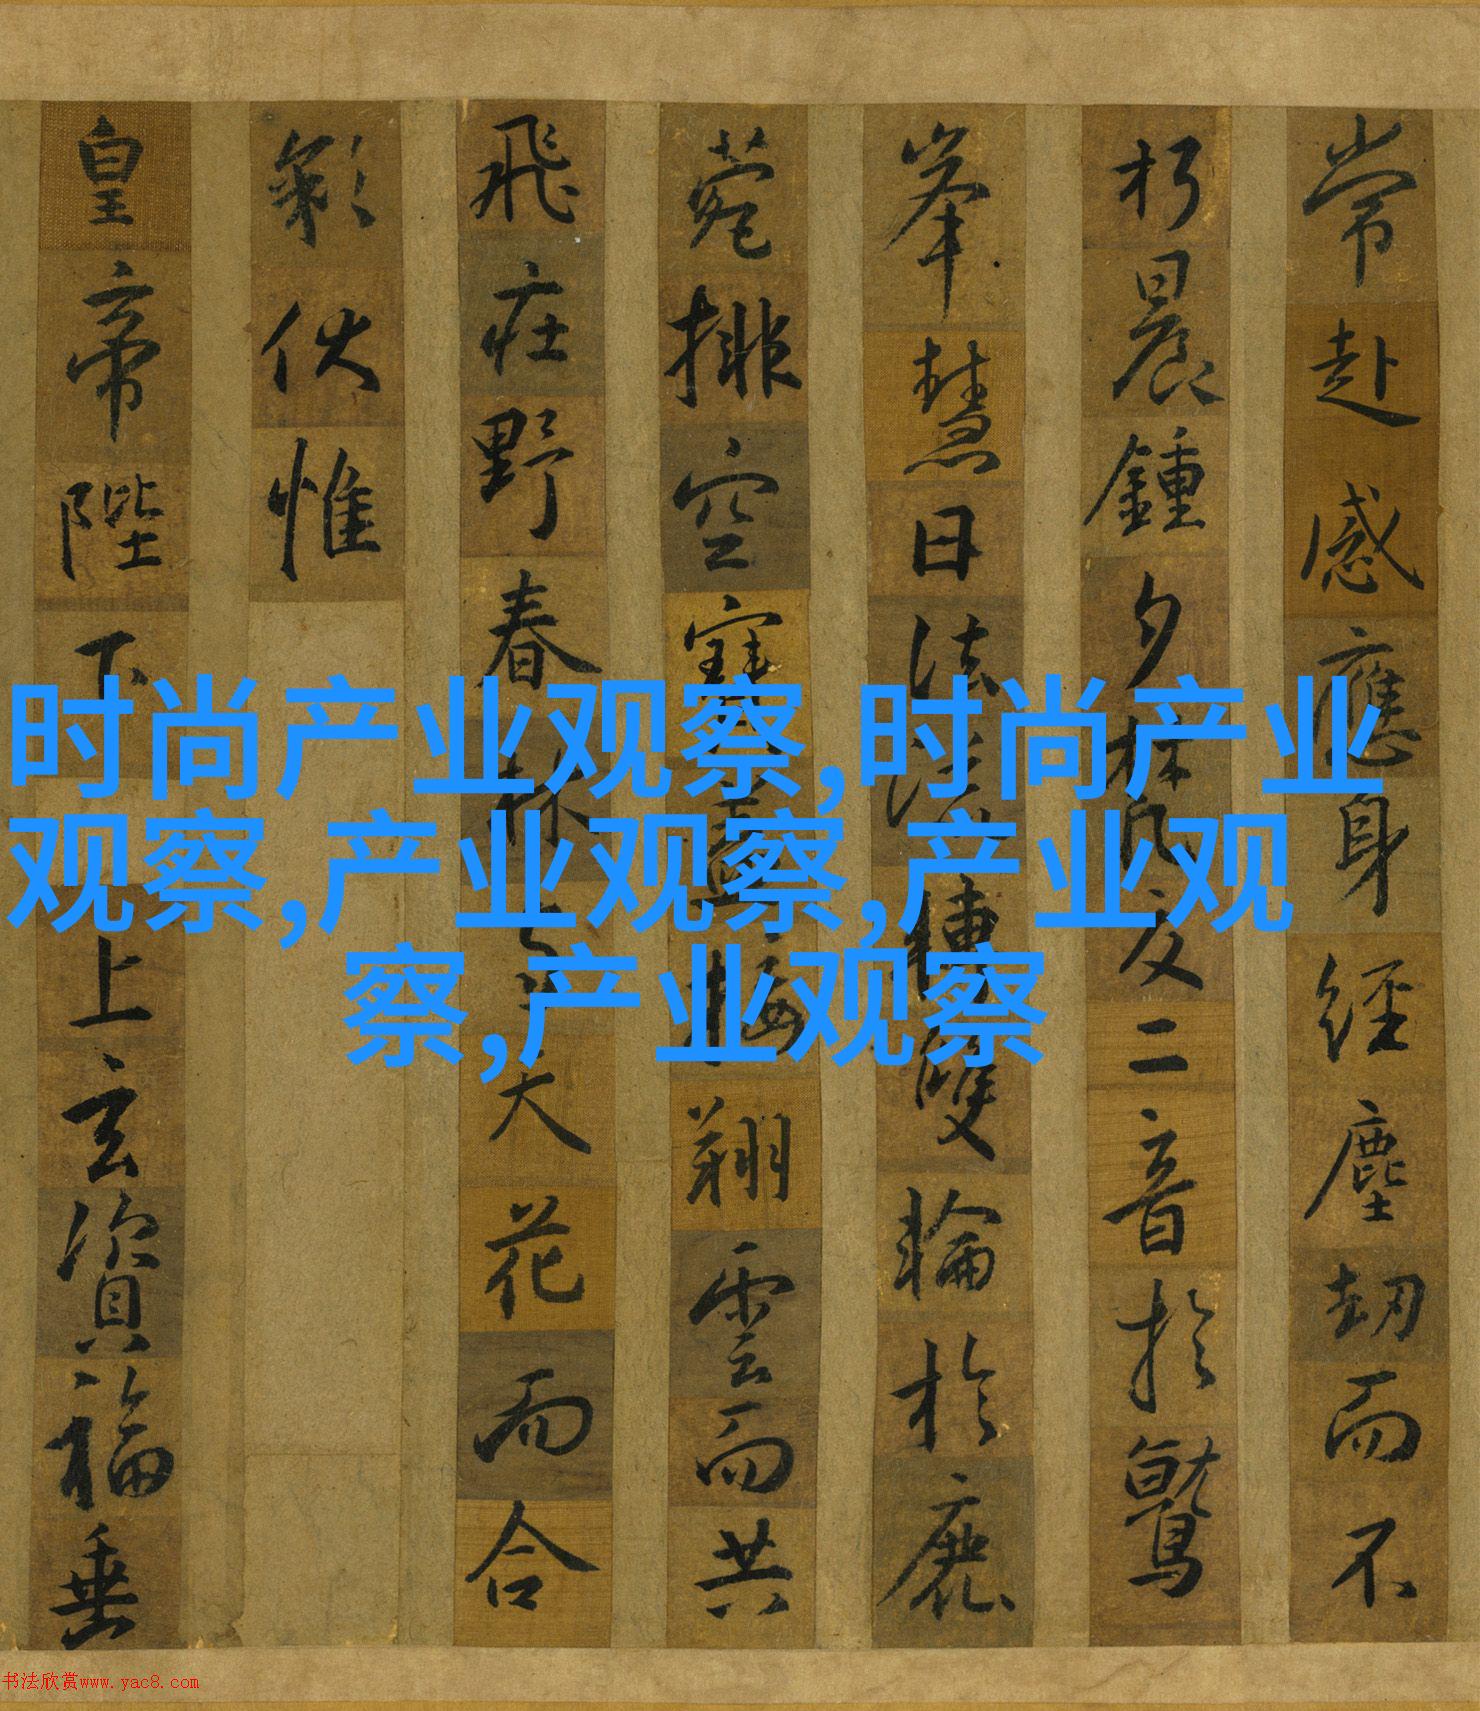 常赴感應身經塵劫而不
朽晨鍾夕梵交二音於鷲
峯慧日法流轉雙輪於鹿
菀排空寶蓋接翔雲而共
飛莊野春林天花而合
彩伏惟
皇帝陛下上玄資福垂
时尚产业观察,时尚产业
观察,产业观察,产业观
察,产业观察
书法欣赏www.yac8.com